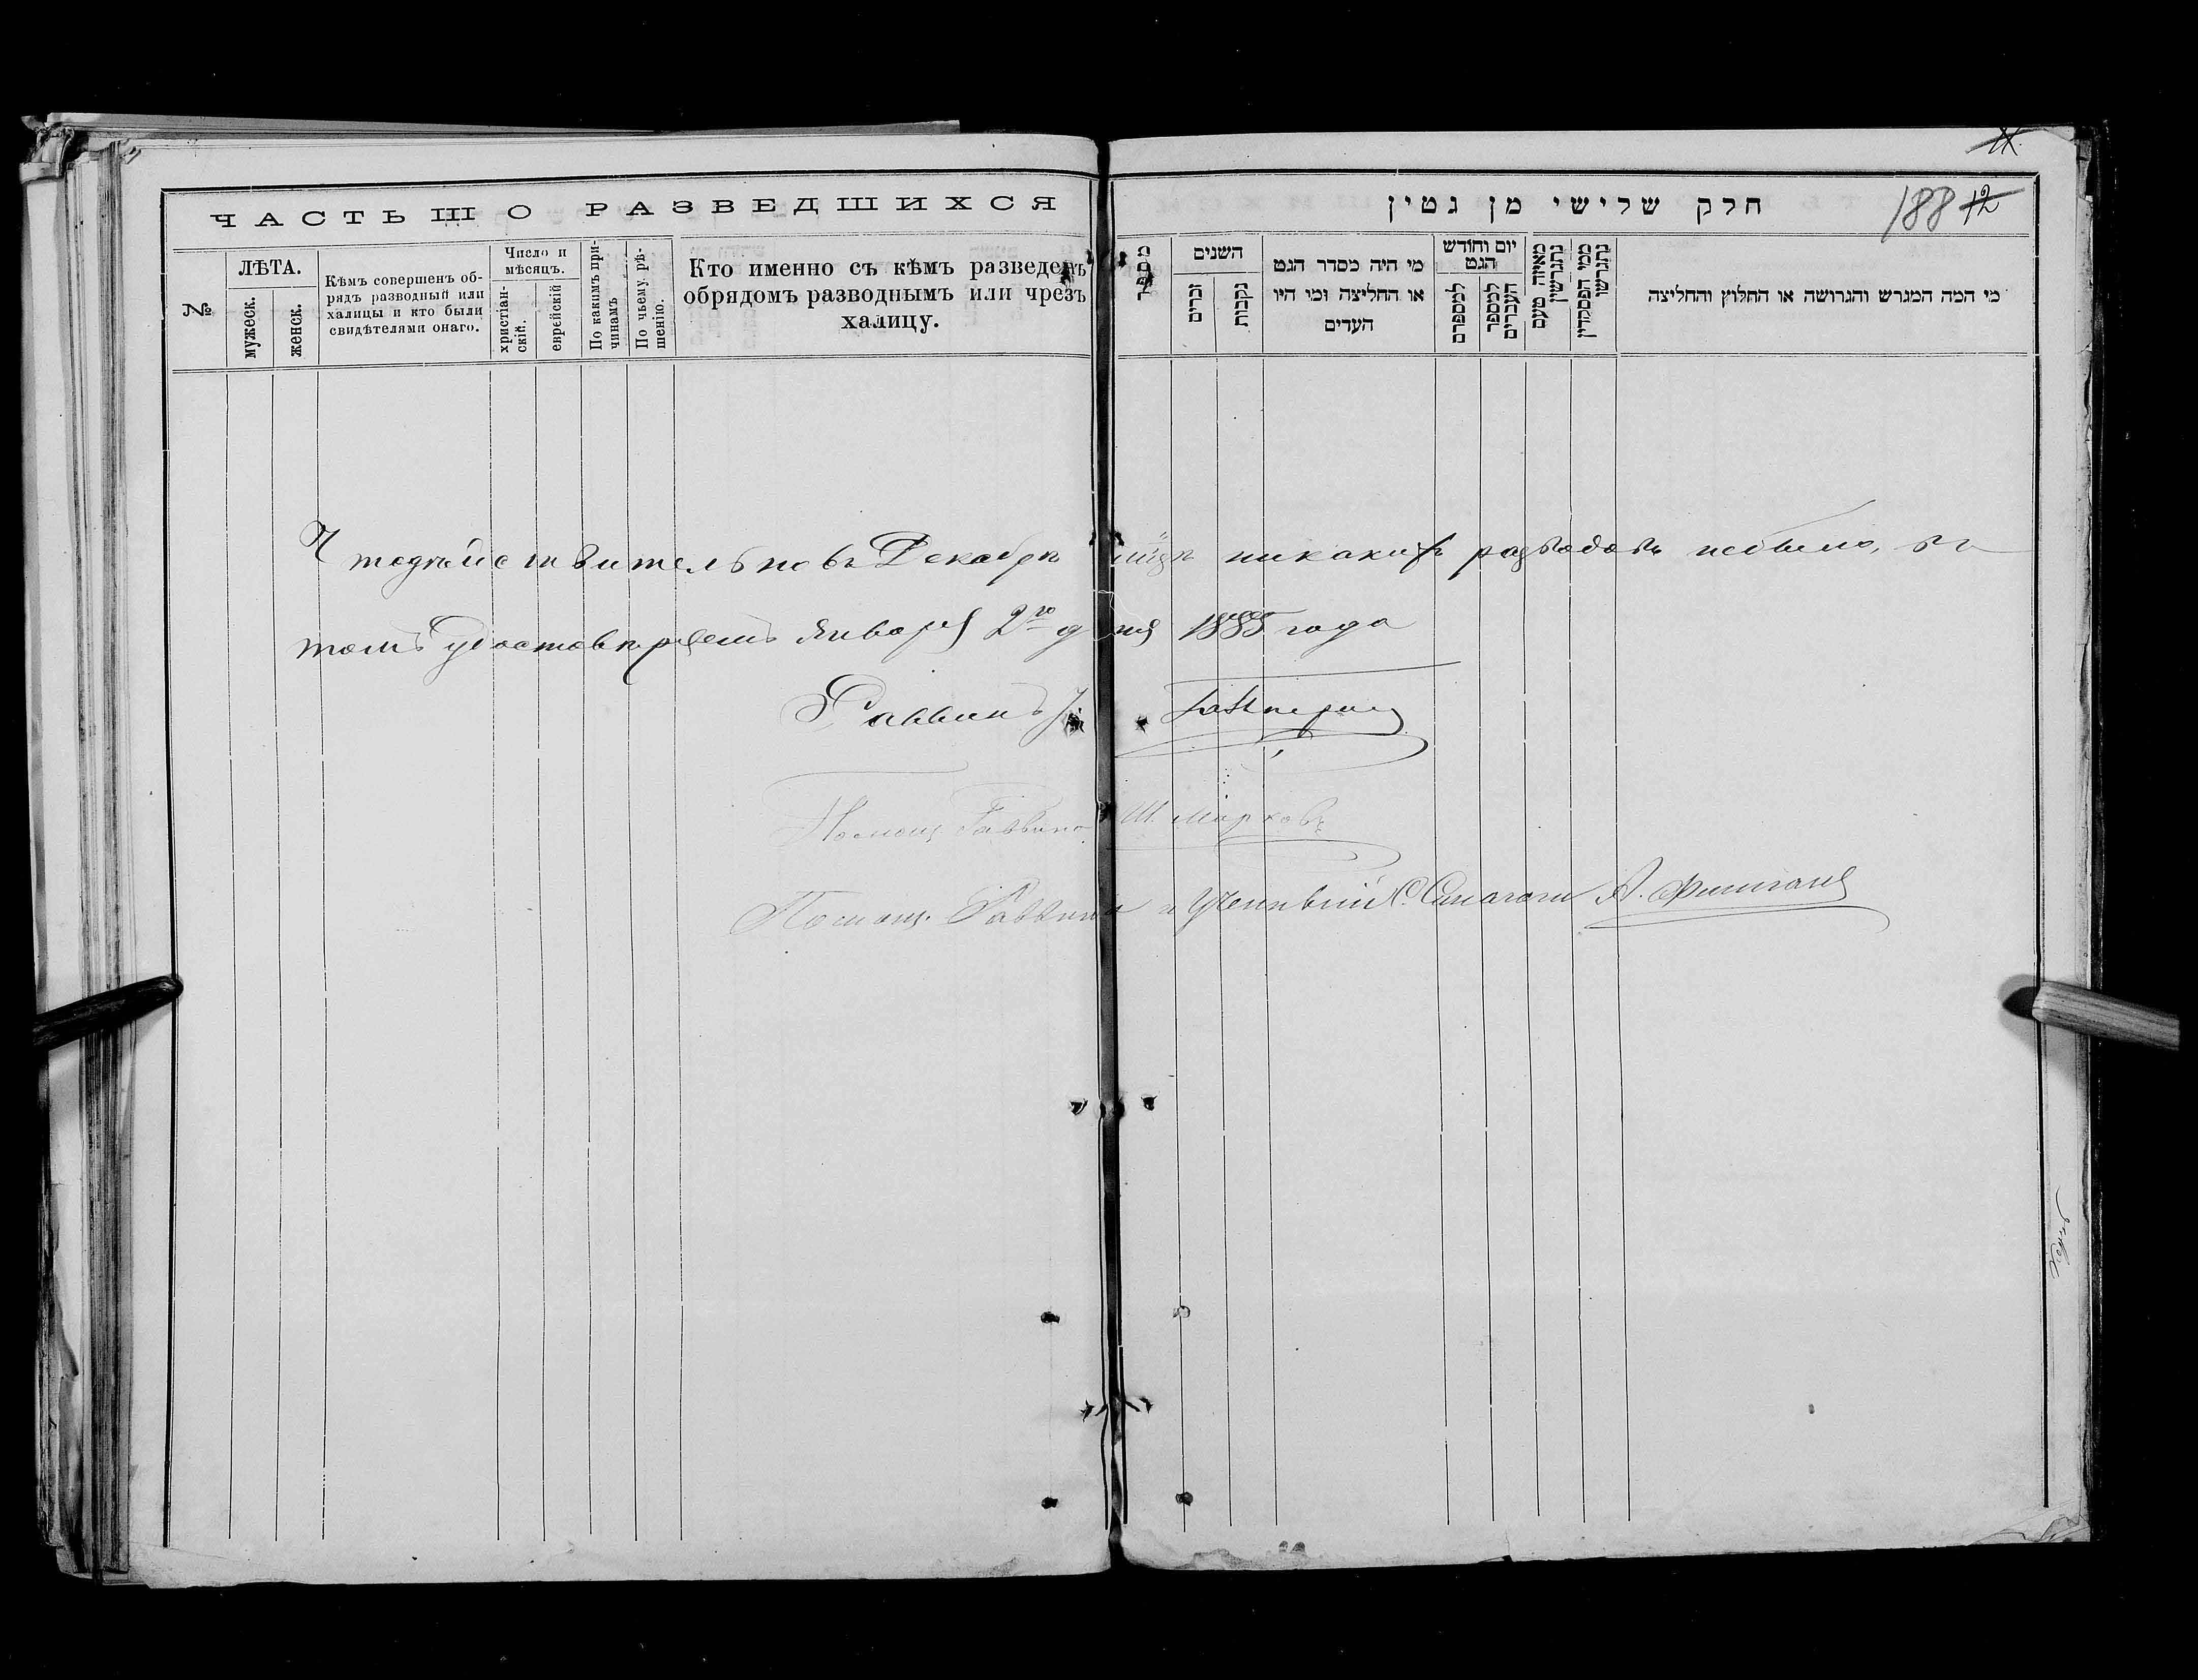 ЧАСТЬ III О РАЗВЕДШИХСЯ
№
ЛѢТА.
мужеск.
женск.
Кѣмъ совершенъ об-
рядъ разводный или
халицы и кто были
свидѣтелями онаго.
Число и
мѣсяцъ.
христіан-
скій.
еврейскій
По какимъ при-
чинамъ
По чьему рѣ-
шенію.
Кто именно съ кѣмъ разведенъ
обрядомъ разводнымъ или чрезъ
халицу.
11.
188 12
חלק שלישי מן גטין
מספר
השנים
זכרים
נקבות
מי היה מסדר הגט
או החליצה ומי היו
העדים
יום וחודש
הגט
למספרם
למספר
העברים
מאיזה טעם
נתגרשו
ממי הפסקדין
נתגרשו
מי המה המגרש והגרושה או החלוץ והחליצה
Что дѣйствительно въ Декабрѣ никакихъ разводовъ небыло, въ
томъ удостовѣряемъ Января 2го дня 1885 года
Раввинъ
Помощ Раввина Ш. Марковъ
Помощ. Раввина и Ученый С. Синагоги А.